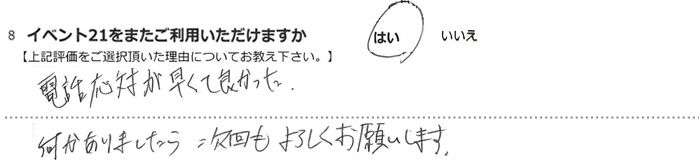 8 イベント21をまたご利用いただけますか はい いいえ
【上記評価をご選択頂いた理由についてお教え下さい。】
電話応対が早くて良かった.
何かありましたらˎ次回もよろしくお願いします.